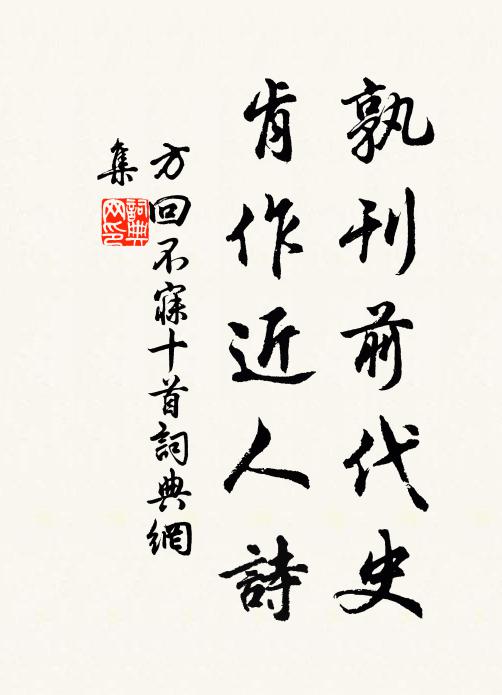 孰刊前代史
肯作近人詩
方回不寐十首詞典網
集
詞典網印